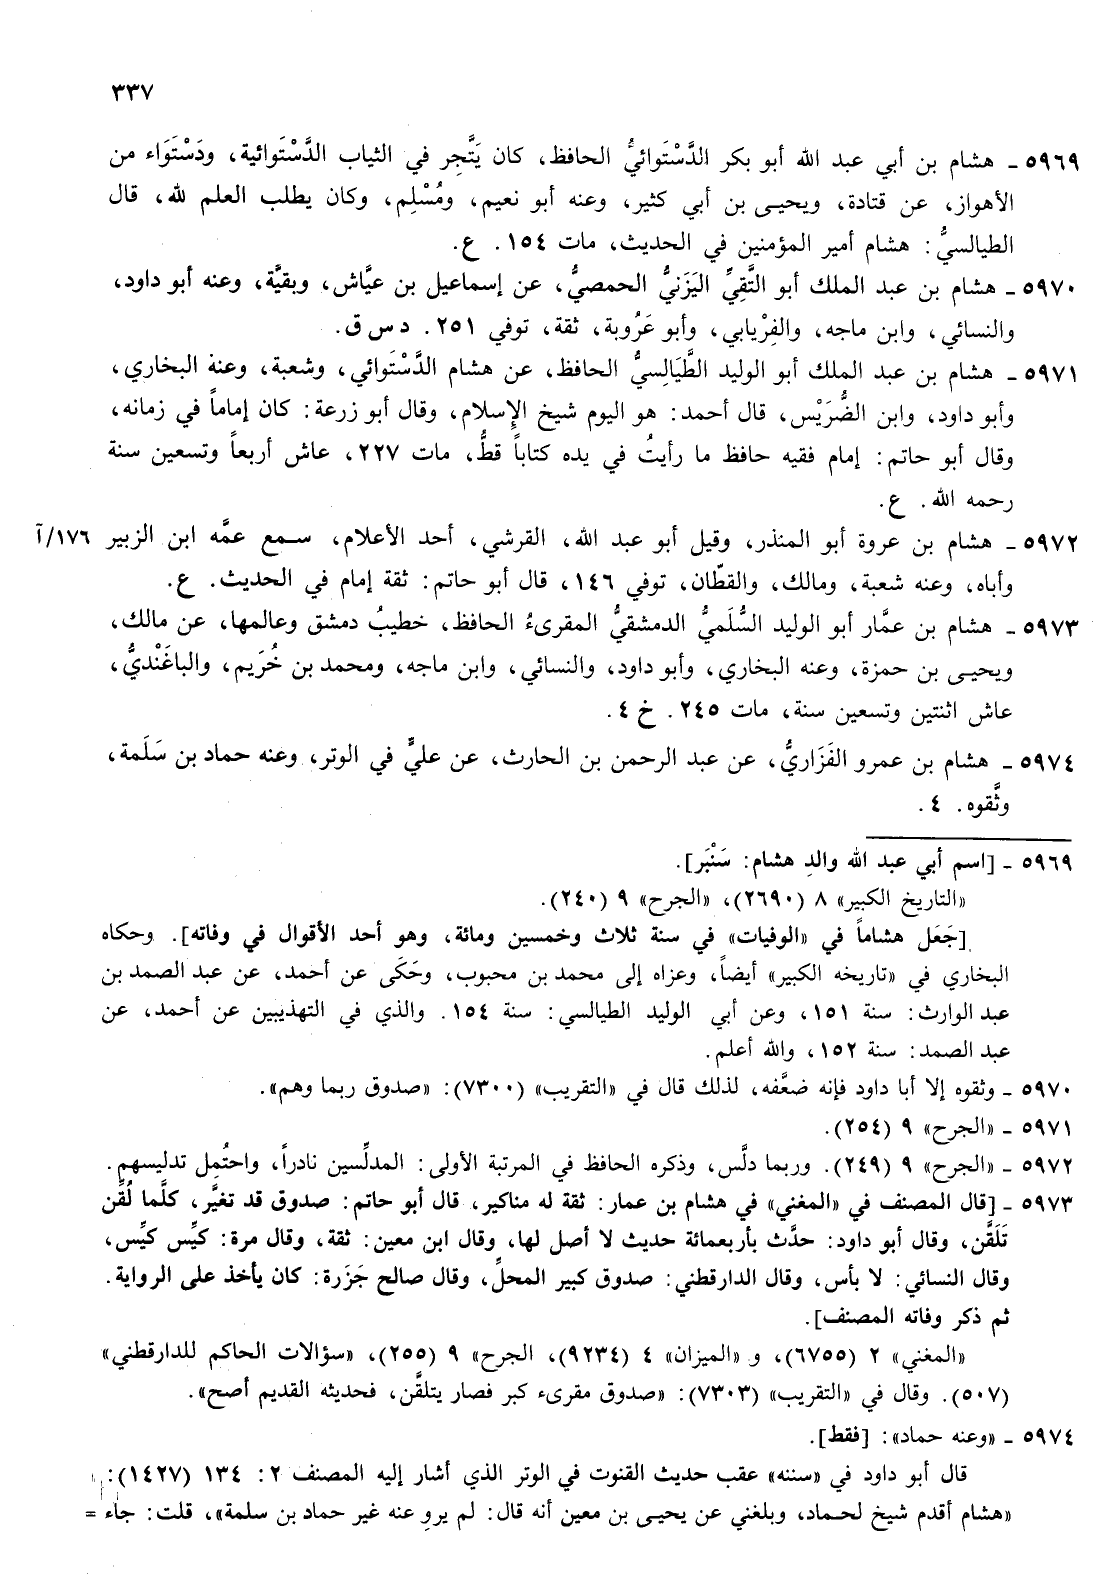 ٣٣٧
٥٩٦٩ ـ هشام بن أبي عبد الله أبو بكر الدَّسْتَوائيُّ الحافظ، كان يَتَّجِر في الثياب الدَّسْتَوائية، ودَسْتَوَاء من
الأهواز، عن قتادة، ويحيـى بن أبي كثير، وعنه أبو نعيم، ومُسْلِم، وكان يطلب العلم لله، قال
الطيالسيُّ: هشام أمير المؤمنين في الحديث، مات ١٥٤. ع.
٥٩٧٠ ـ هشام بن عبد الملك أبو التَّقِيِّ اليَزَنيُّ الحمصيُّ، عن إسماعيل بن عيَّاش، وبقيَّة، وعنه أبو داود،
والنسائي، وابن ماجه، والفِرْيابي، وأبو عَرُوبة، ثقة، توفي ٢٥١. د س ق.
٥٩٧١ ـ هشام بن عبد الملك أبو الوليد الطَّيَالِسيُّ الحافظ، عن هشام الدَّسْتَوائي، وشعبة، وعنه البخاري،
وأبو داود، وابن الضُّرَيْس، قال أحمد: هو اليوم شيخ الإسلام، وقال أبو زرعة: كان إماماً في زمانه،
وقال أبو حاتم: إمام فقيه حافظ ما رأيتُ في يده كتاباً قطُّ، مات ٢٢٧، عاش أربعاً وتسعين سنة
رحمه الله. ع.
٥٩٧٢ ـ هشام بن عروة أبو المنذر، وقيل أبو عبد الله، القرشي، أحد الأعلام، سـمع عمَّه ابن الزبير ١٧٦/آ
وأباه، وعنه شعبة، ومالك، والقطّان، توفي ١٤٦، قال أبو حاتم: ثقة إمام في الحديث. ع.
٥٩٧٣ ـ هشام بن عمَّار أبو الوليد السُّلَميُّ الدمشقيُّ المقرىءُ الحافظ، خطيبُ دمشق وعالمها، عن مالك،
ويحيـى بن حمزة، وعنه البخاري، وأبو داود، والنسائي، وابن ماجه، ومحمد بن خُرَيم، والباغَنْديُّ،
عاش اثنتين وتسعين سنة، مات ٢٤٥. خ ٤.
٥٩٧٤ ـ هشام بن عمرو الفَزَاريُّ، عن عبد الرحمن بن الحارث، عن عليٍّ في الوتر، وعنه حماد بن سَلَمة،
وثَّقوه. ٤.
٥٩٦٩ ـ [اسم أبي عبد الله والدِ هشام: سَنْبَر].
«التاريخ الكبير» ٨ (٢٦٩٠)، «الجرح» ٩ (٢٤٠).
[جَعَل هشاماً في «الوفيات» في سنة ثلاث وخمسين ومائة، وهو أحد الأقوال في وفاته]. وحكاه
البخاري في «تاريخه الكبير» أيضاً، وعزاه إلى محمد بن محبوب، وحَكَى عن أحمد، عن عبد الصمد بن
عبد الوارث: سنة ١٥١، وعن أبي الوليد الطيالسي: سنة ١٥٤. والذي في التهذيبين عن أحمد، عن
عبد الصمد: سنة ١٥٢، والله أعلم.
٥٩٧٠ ـ وثقوه إلا أبا داود فإنه ضعَّفه، لذلك قال في «التقريب» (٧٣٠٠): «صدوق ربما وهم».
٥٩٧١ ـ «الجرح» ٩ (٢٥٤).
٥٩٧٢ ـ «الجرح» ٩ (٢٤٩). وربما دلَّس، وذكره الحافظ في المرتبة الأولى: المدلِّسين نادراً، واحتُمِل تدليسهم.
٥٩٧٣ ـ [قال المصنف في «المغني» في هشام بن عمار: ثقة له مناكير، قال أبو حاتم: صدوق قد تغيَّر، كلَّما لُقِّن
تَلَقَّن، وقال أبو داود: حدَّث بأربعمائة حديث لا أصل لها، وقال ابن معين: ثقة، وقال مرة: كيِّس كيِّس،
وقال النسائي: لا بأس، وقال الدارقطني: صدوق كبير المحلِّ، وقال صالح جَزَرة: كان يأخذ على الرواية.
ثم ذكر وفاته المصنف].
«المغني» ٢ (٦٧٥٥)، و «الميزان» ٤ (٩٢٣٤)، الجرح» ٩ (٢٥٥)، «سؤالات الحاكم للدارقطني»
(٥٠٧). وقال في «التقريب» (٧٣٠٣): «صدوق مقرىء كبر فصار يتلقَّن، فحديثه القديم أصح».
٥٩٧٤ ـ «وعنه حماد»: [فقط].
قال أبو داود في «سننه» عقب حديث القنوت في الوتر الذي أشار إليه المصنف ٢: ١٣٤ (١٤٢٧):
«هشام أقدم شيخ لحـماد، وبلغني عن يحيـى بن معين أنه قال: لم يروِ عنه غير حماد بن سلمة»، قلت: جاء =